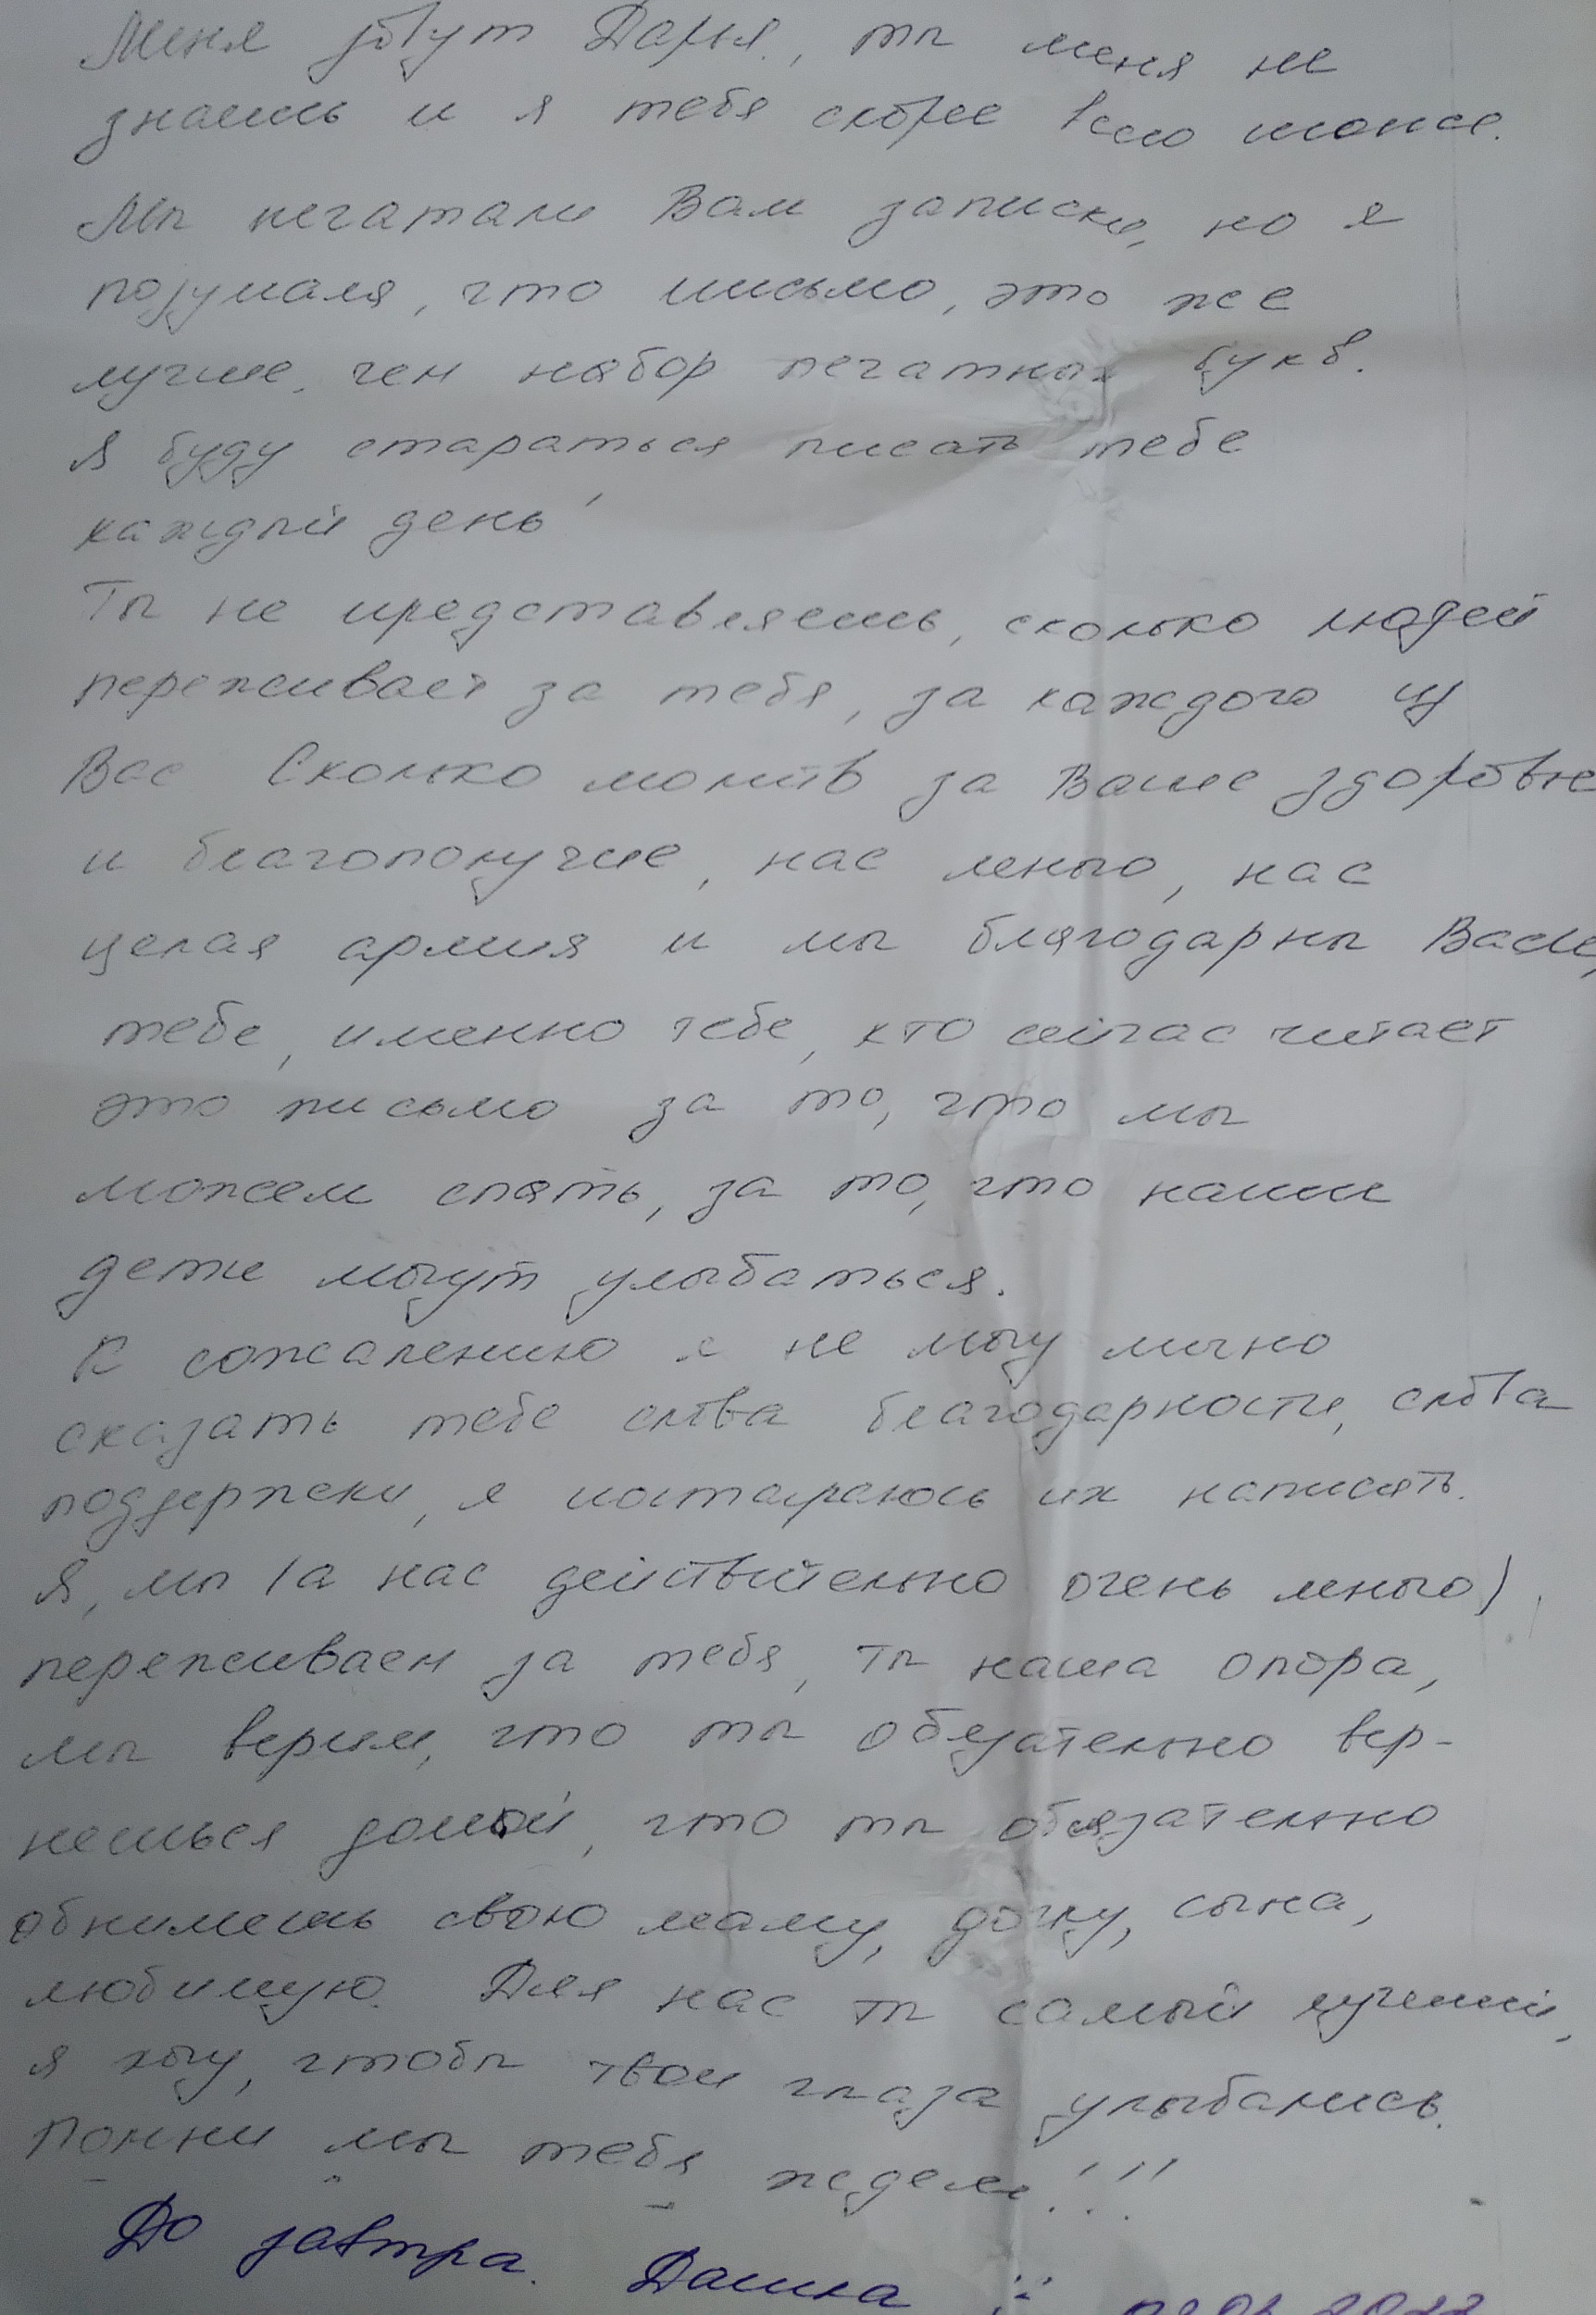 Меня зовут Дарья, ты меня не
знаешь и я тебя скорее всего тоже.
Мы печатали Вам записки, но я
подумала, что письмо, это же
лучше, чем набор печатных букв.
Я буду стараться писать тебе
каждый день!
Ты не представляешь, сколько людей
переживает за тебя, за каждого из
Вас Сколько молитв за Ваше здоровье
и благополучие, нас много, нас
целая армия и мы благодарны Вам,
тебе, именно тебе, кто сейчас читает
это письмо за то, что мы
можем спать, за то, что наши
дети могут улыбаться.
К сожалению я не могу лично
сказать тебе слова благодарности, слова
поддержки, я постараюсь их написать.
Я, мы (а нас действительно очень много)
переживаем за тебя, ты наша опора,
мы верим, что ты обязательно вер-
нешься домой, что ты обязательно
обнимешь свою маму, дочку, сына,
любимую. Для нас ты самый лучший,
я хочу, чтобы твои глаза улыбались.
Помни мы тебя ждем!!!
До завтра. Дашка